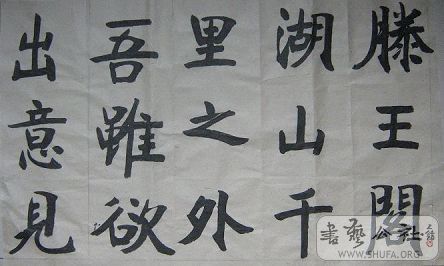 滕王閣
湖山千
里之外
吾雖欲
出意見
書藝公社
WWW.SHUFA.ORG